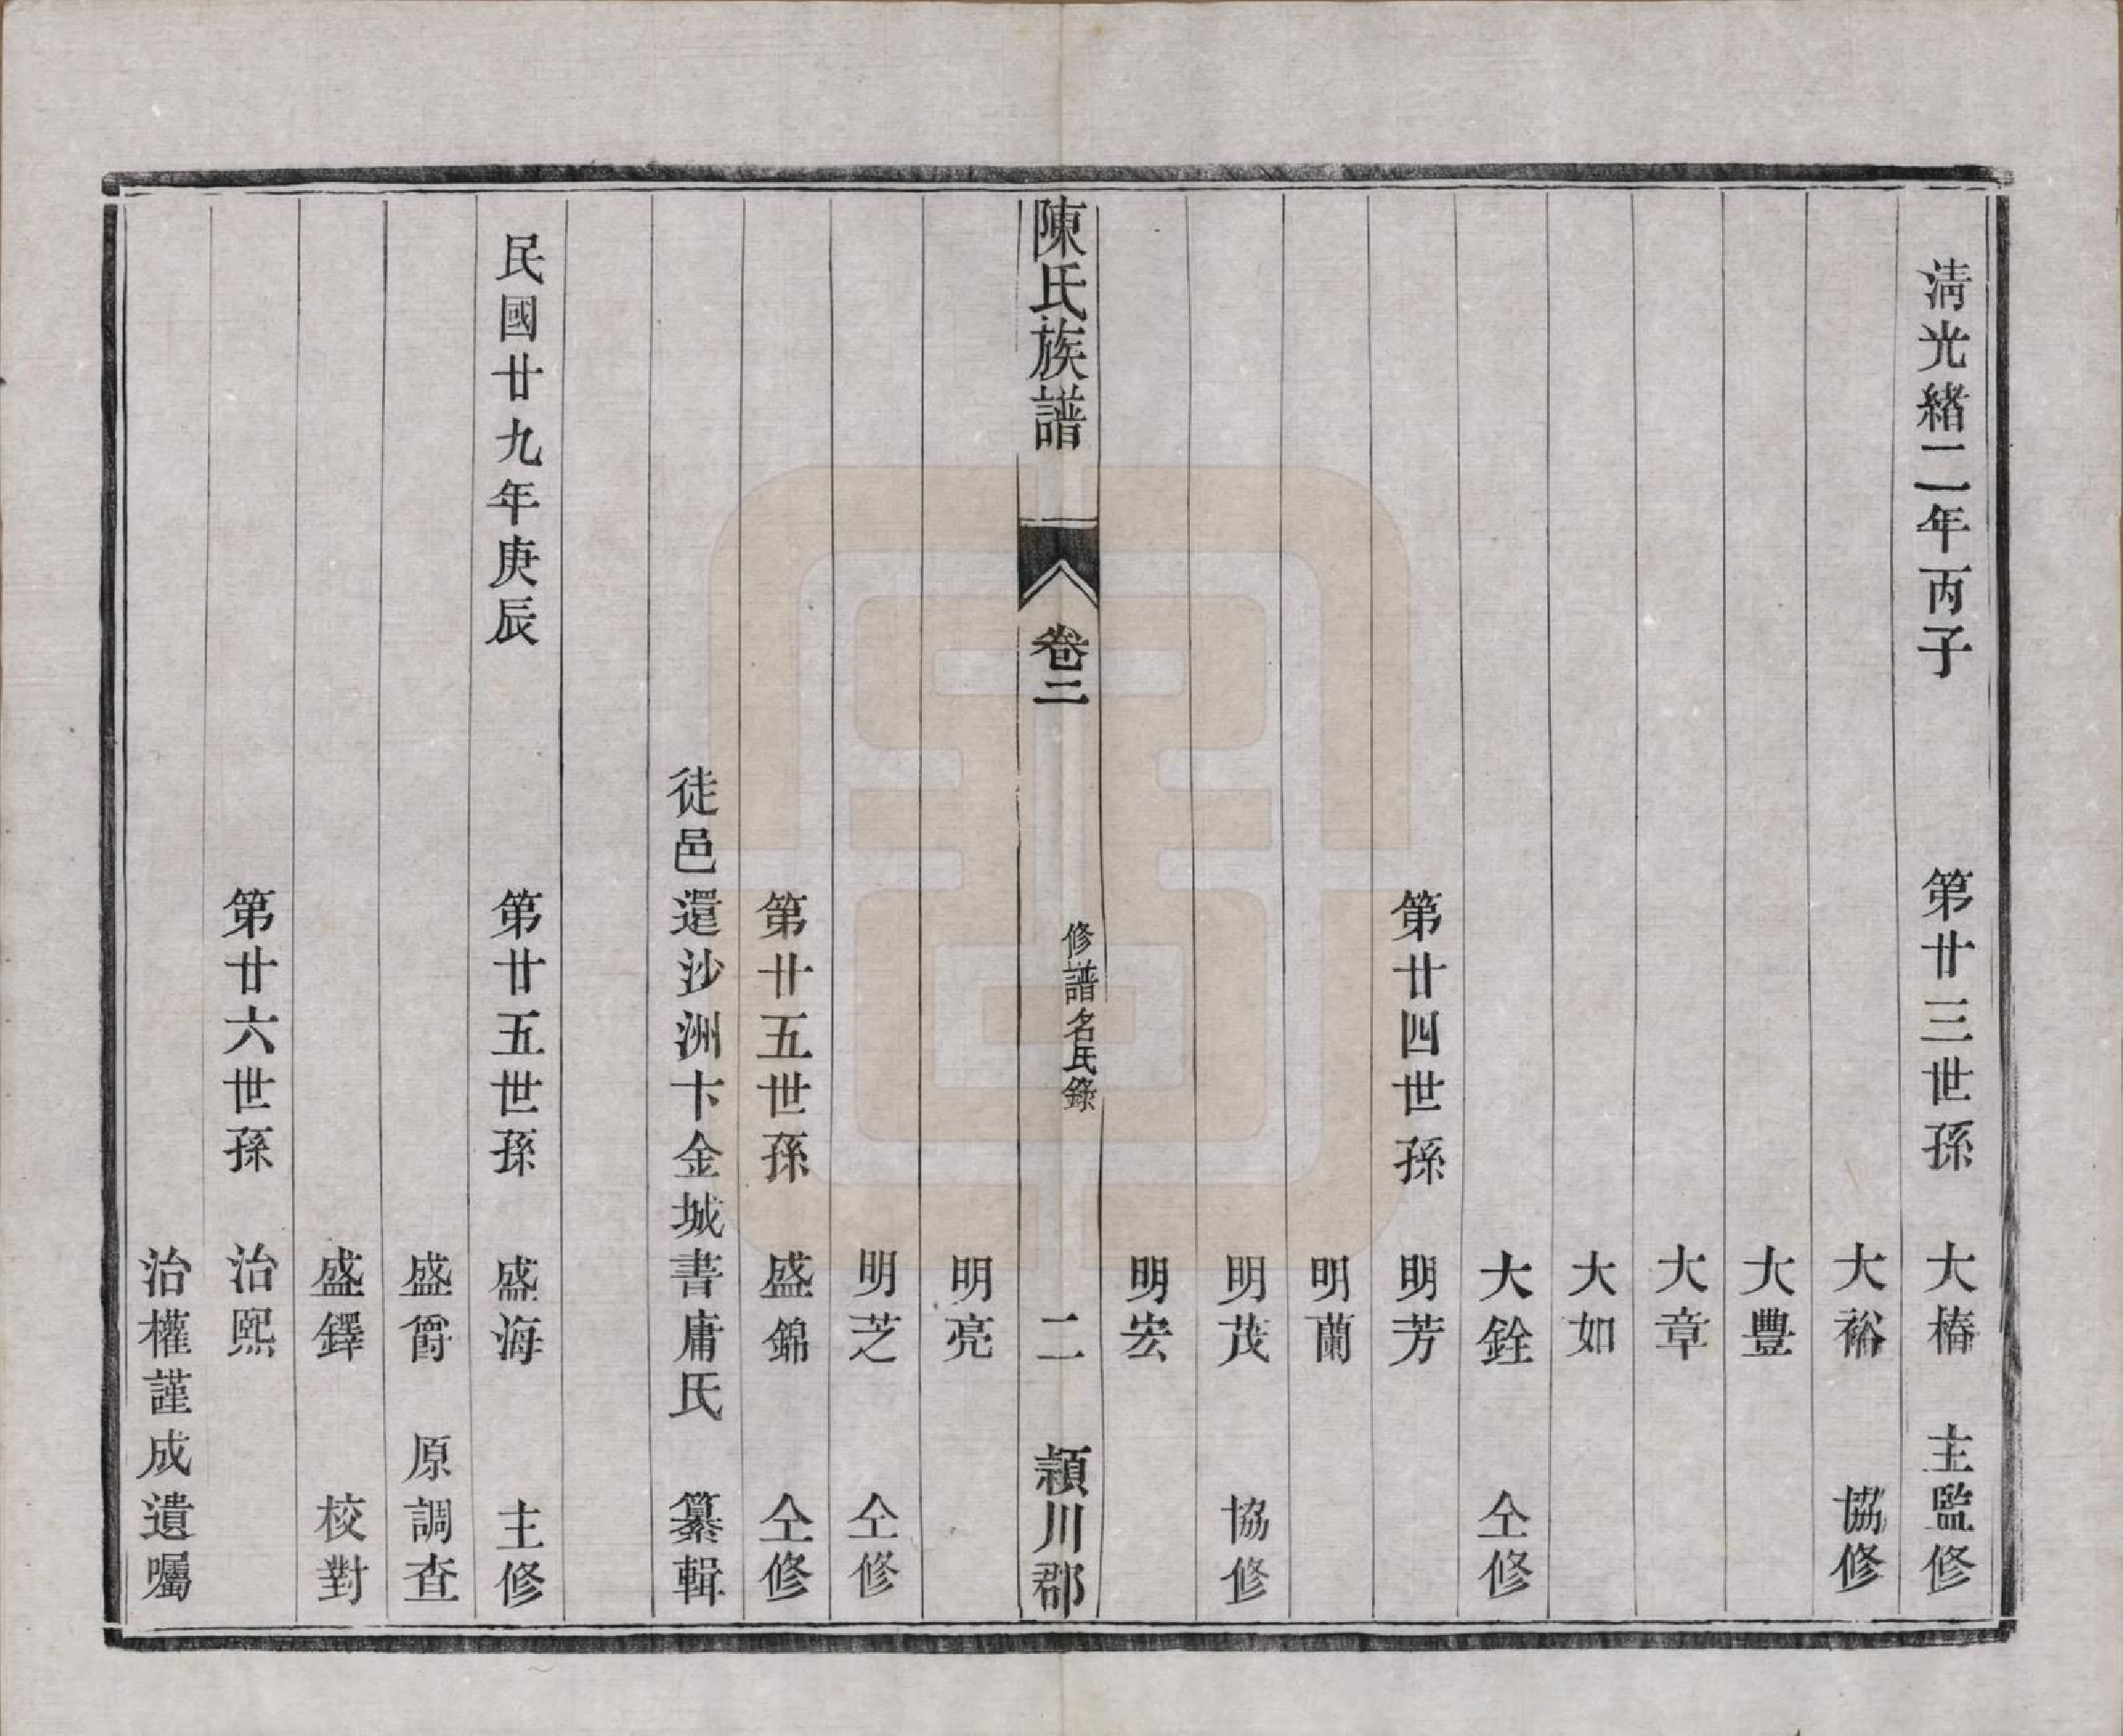 淸光緒二年丙子 第廿三世孫 大椿 主監修
大裕 協修
大豐
大章
大如
大銓 仝修
第廿四世孫 明芳
明蘭
明茂 協修
明宏
陳氏族譜 卷二 修譜名氏錄 二 潁川郡
明亮
明芝 仝修
第廿五世孫 盛錦 仝修
徒邑還沙洲卞金城書庸氏 纂輯
民國廿九年庚辰 第廿五世孫 盛海 主修
盛爵 原調查
盛鐸 校對
第廿六世孫 治熙
治權謹成遺囑